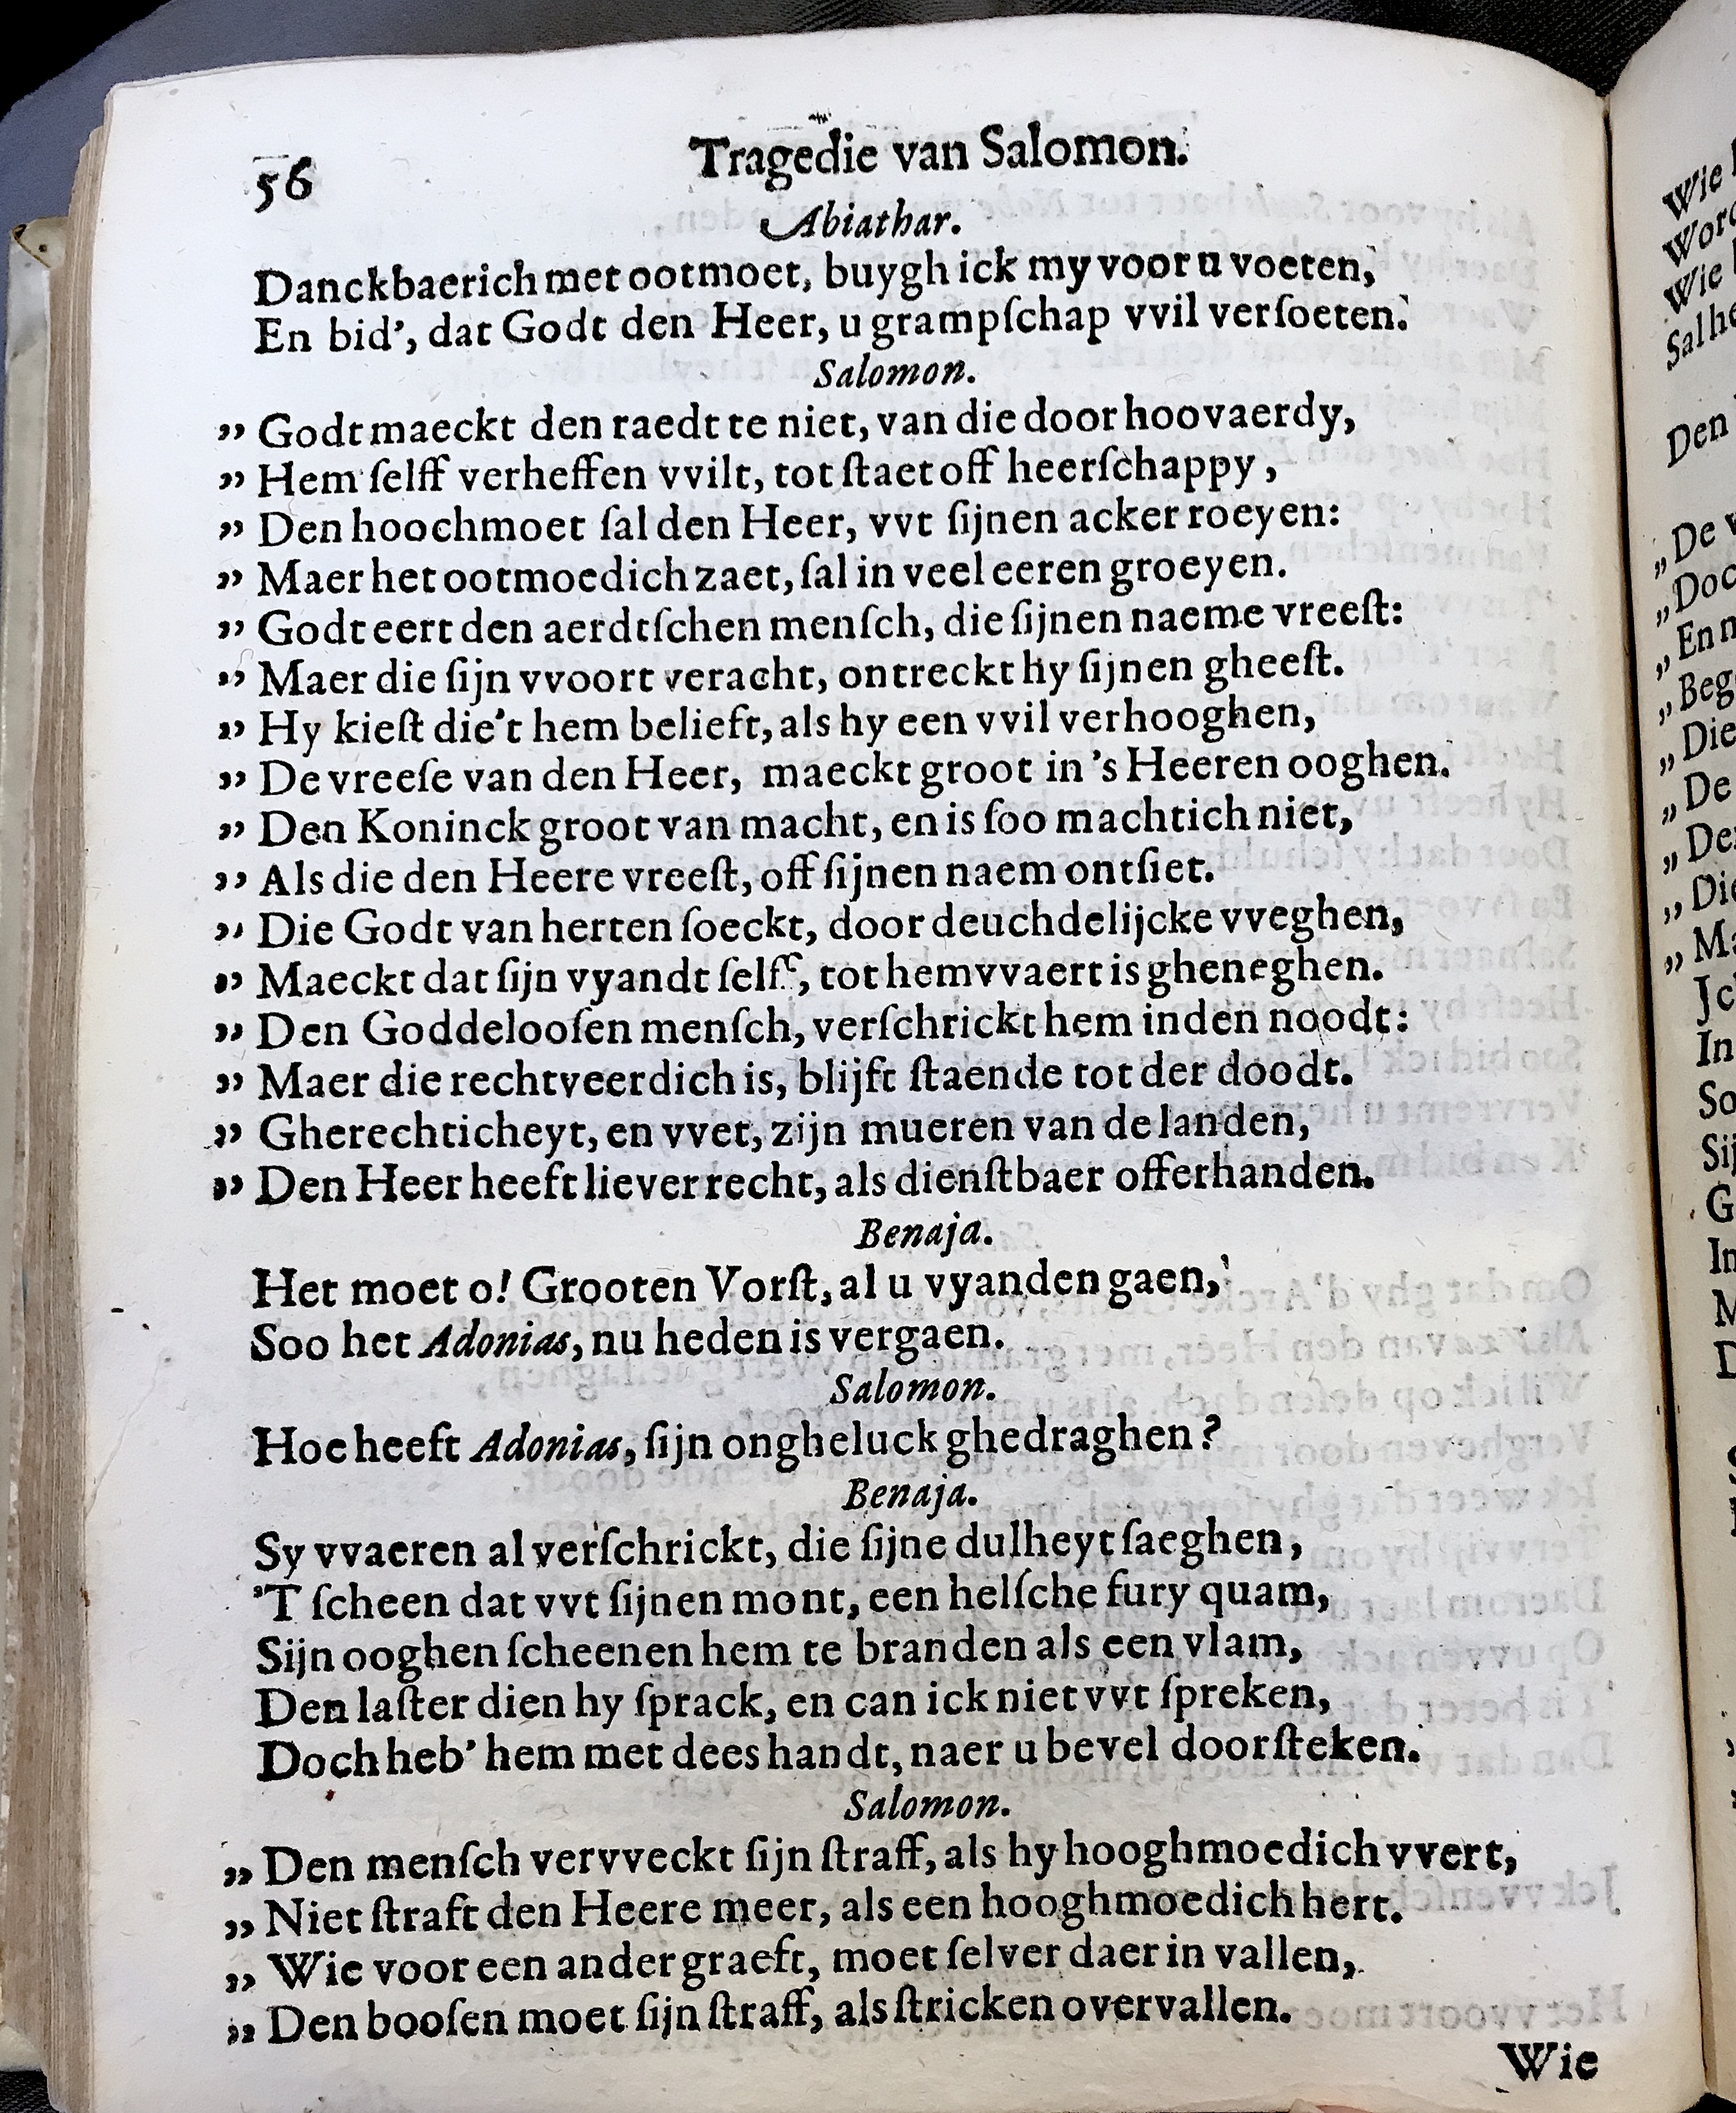 56
Tragedie van Salomon.
Abiathar.
Danckbaerich met ootmoet, buygh ick my voor u voeten,
En bid', dat Godt den Heer, u grampſchap vvil verſoeten.
Salomon.
„ Godt maeckt den raedt te niet, van die door hoovaerdy,
„ Hem ſelff verheffen vvilt, tot ſtaet off heerſchappy,
„ Den hoochmoet ſal den Heer, vvt ſijnen acker roeyen:
„ Maer het ootmoedich zaet, ſal in veel eeren groeyen.
„ Godt eert den aerdtſchen menſch, die ſijnen naeme vreeſt:
„ Maer die ſijn vvoort veracht, ontreckt hy ſijnen gheeſt.
„ Hy kieſt die't hem belieft, als hy een vvil verhooghen,
„ De vreeſe van den Heer, maeckt groot in 's Heeren ooghen.
„ Den Koninck groot van macht, en is ſoo machtich niet,
„ Als die den Heere vreeſt, off ſijnen naem ontſiet.
„ Die Godt van herten ſoeckt, door deuchdelijcke vveghen,
„ Maeckt dat ſijn vyandt ſelff, tot hemvvaert is gheneghen.
„ Den Goddelooſen menſch, verſchrickt hem inden noodt:
„ Maer die rechtveerdich is, blijft ſtaende tot der doodt.
„ Gherechticheyt, en vvet, zijn mueren van de landen,
„ Den Heer heeft liever recht, als dienſtbaer offerhanden.
Benaja.
Het moet o! Grooten Vorſt, al u vyanden gaen,
Soo het Adonias, nu heden is vergaen.
Salomon.
Hoe heeft Adonias, ſijn ongheluck ghedraghen?
Benaja.
Sy vvaeren al verſchrickt, die ſijne dulheyt ſaeghen,
'T ſcheen dat vvt ſijnen mont, een helſche fury quam,
Sijn ooghen ſcheenen hem te branden als een vlam,
Den laſter dien hy ſprack, en can ick niet vvt ſpreken,
Doch heb' hem met dees handt, naer u bevel doorſteken.
Salomon.
„ Den menſch vervveckt ſijn ſtraff, als hy hooghmoedich vvert,
„ Niet ſtraft den Heere meer, als een hooghmoedich hert.
„ Wie voor een ander graeft, moet ſelver daer in vallen,
„ Den booſen moet ſijn ſtraff, als ſtricken overvallen.
Wie